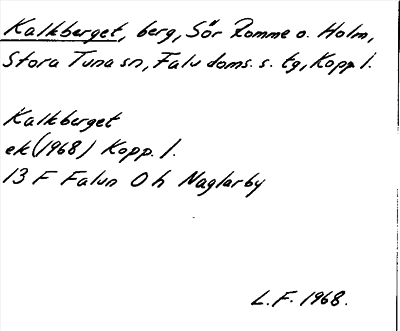 Kalkberget, berg, Sör Romme o. Holm,
Stora Tuna sn, Falu doms. s. tg, Kopp. l.
Kalkberget
ek (1968) Kopp. l.
13 F Falun 0 h Naglarby
L. F. 1968.